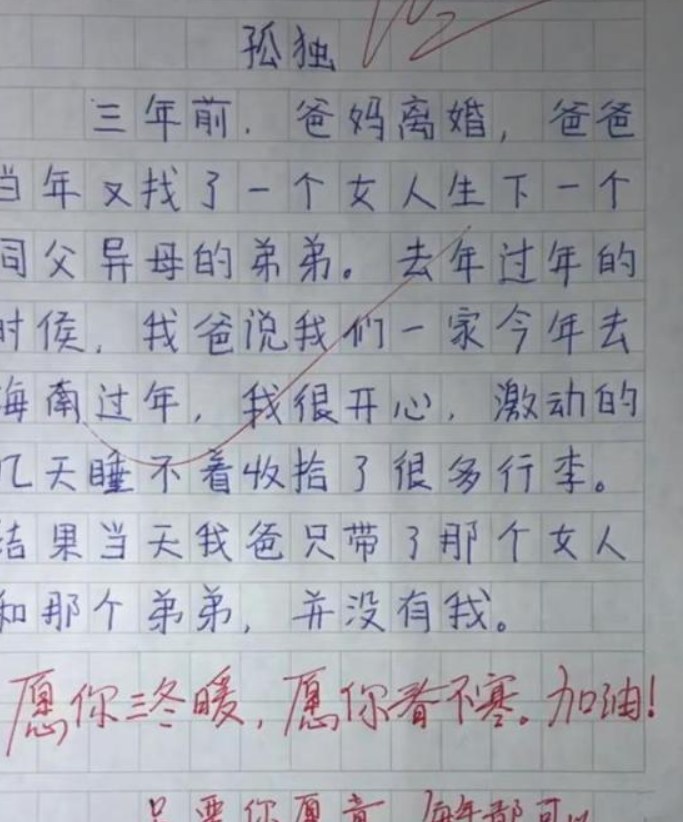 孤独
三年前. 爸妈离婚, 爸爸
当年又找了一个女人生下一个
同父异母的弟弟。去年过年的
时侯, 我爸说我们一家今年去
海南过年, 我很开心, 激动的
几天睡不着收拾了很多行李。
结果当天我爸只带了那个女人
和那个弟弟, 并没有我。
愿你三冬暖, 愿你春不寒。加油!
只要你愿意